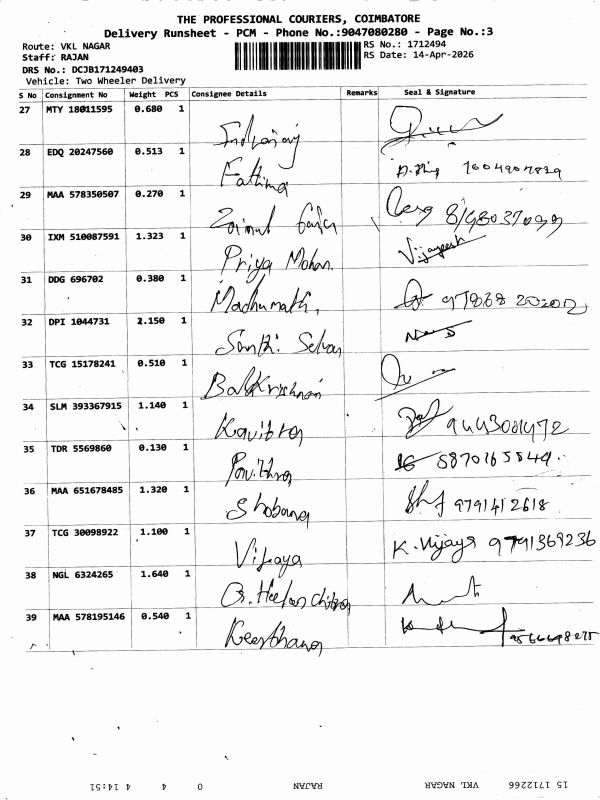 THE PROFESSIONAL COURIERS, COIMBATORE
Delivery Runsheet - PCM - Phone No.:9047080280 - Page No.:3
Route: VKL NAGAR RS No.: 1712494
Staff: RAJAN RS Date: 14-Apr-2026
DRS No.: DCJB171249403
Vehicle: Two Wheeler Delivery
S No Consignment No Weight PCS Consignee Details Remarks Seal & Signature
27 MTY 18011595 0.680 1
28 EDQ 20247560 0.513 1 Fathima
29 MAA 578350507 0.270 1 Zainul
30 IXM 510087591 1.323 1 Priya Mohan. Vijayesh
31 DDG 696702 0.380 1 Madhumathi,
32 DPI 1044731 2.150 1 Santhi Selvan
33 TCG 15178241 0.510 1 BalaKrishnan
34 SLM 393367915 1.140 1 Kavithra
35 TDR 5569860 0.130 1 Pavithra 5870165849.
36 MAA 651678485 1.320 1 Shobana 9791412618
37 TCG 30098922 1.100 1 Vijaya K. Vijaya 9791369236
38 NGL 6324265 1.640 1
39 MAA 578195146 0.540 1 Keerthana
15 1712266 VKL NAGAR RAJAN 0 4 4 14:51